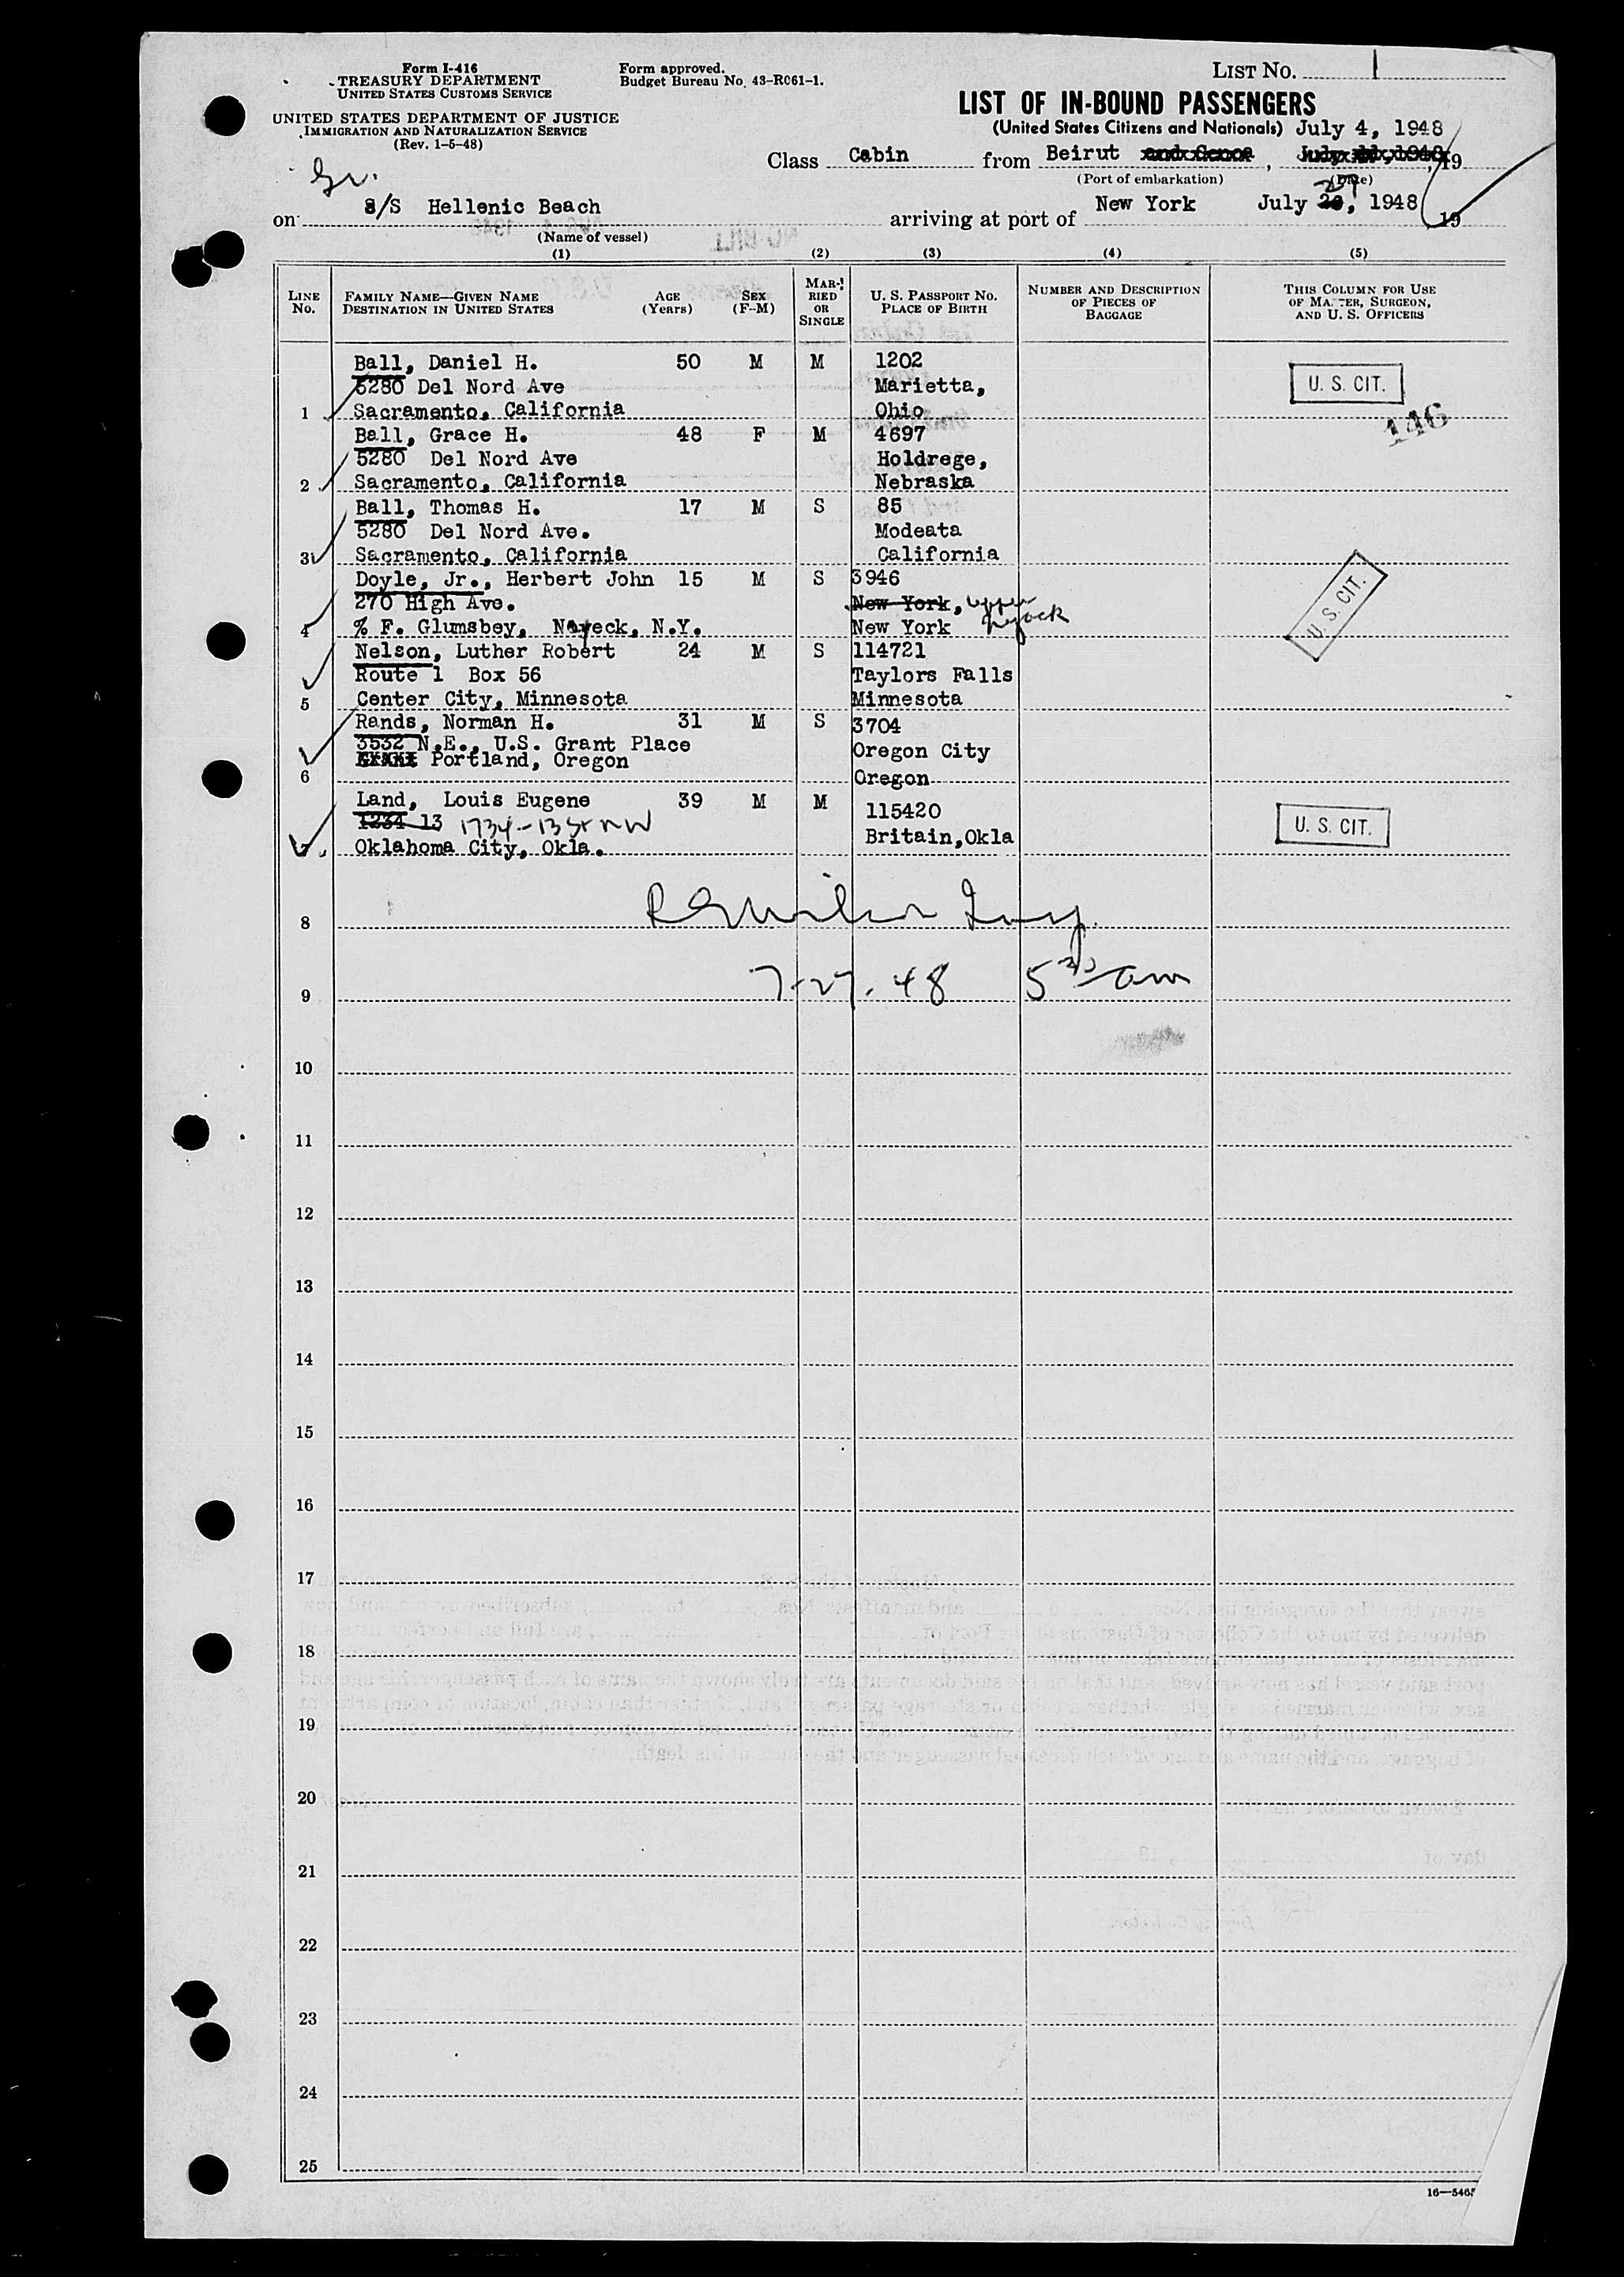 Form I-416
TREASURY DEPARTMENT
UNITED STATES CUSTOMS SERVICE
UNITED STATES DEPARTMENT OF JUSTICE
IMMIGRATION AND NATURALIZATION SERVICE
(Rev. 1-5-48)
Form approved.
Budget Bureau No. 43-R061-1.
LIST No. 1
LIST OF IN-BOUND PASSENGERS
(United States Citizens and Nationals) July 4, 1948
Class Cabin from Beirut and Genoa, 19
(Port of embarkation) (Date)
on S/S Hellenic Beach arriving at port of New York July 27, 1948 19
(Name of vessel)
(1) (2) (3) (4) (5)
LINE No.
FAMILY NAME—GIVEN NAME
DESTINATION IN UNITED STATES
AGE (Years)
SEX (F-M)
MARRIED OR SINGLE
U. S. PASSPORT NO.
PLACE OF BIRTH
NUMBER AND DESCRIPTION OF PIECES OF BAGGAGE
THIS COLUMN FOR USE OF MASTER, SURGEON, AND U. S. OFFICERS
Ball, Daniel H. 50 M M 1202
5280 Del Nord Ave Marietta, U. S. CIT.
1 Sacramento, California Ohio
146
Ball, Grace H. 48 F M 4697
5280 Del Nord Ave Holdrege,
2 Sacramento, California Nebraska
Ball, Thomas H. 17 M S 85
5280 Del Nord Ave. Modeata
3 Sacramento, California California
Doyle, Jr., Herbert John 15 M S 3946
270 High Ave. New York, Upper Nyack U. S. CIT.
4 % F. Glumsbey, Nayeck, N.Y. New York
Nelson, Luther Robert 24 M S 114721
Route 1 Box 56 Taylors Falls
5 Center City, Minnesota Minnesota
Rands, Norman H. 31 M S 3704
3532 N.E., U.S. Grant Place Oregon City
Portland, Oregon
6 Oregon
Land, Louis Eugene 39 M M 115420
1234 13 1734-13 St NW Britain,Okla U. S. CIT.
7 Oklahoma City, Okla.
8
7-27-48 5 30 am
9
10
11
12
13
14
15
16
17
18
19
20
21
22
23
24
25